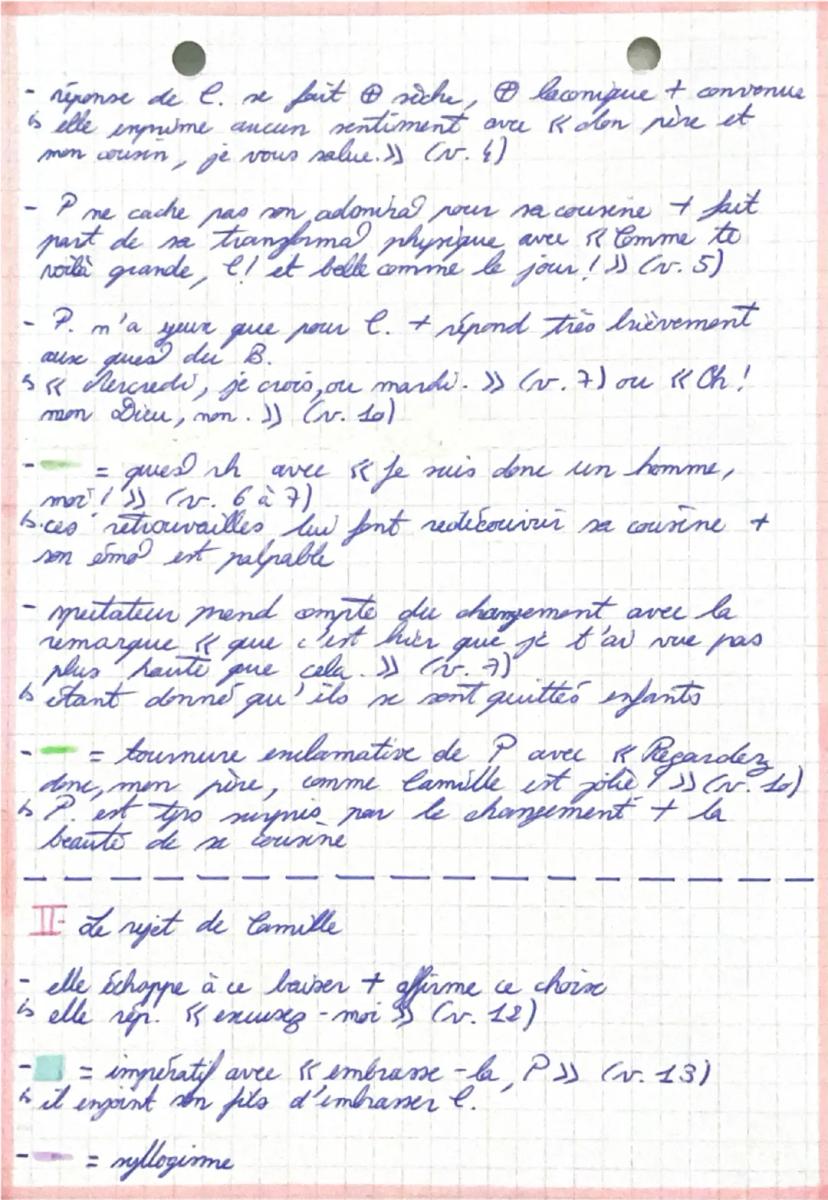 - réponse de C. se fait ⊕ sèche, ⊕ laconique + convenue
↳ elle exprime aucun sentiment avec « Mon père et
mon cousin, je vous salue. » (v. 4)
- P ne cache pas son admira° pour sa cousine + fait
part de sa transforma° physique avec « Comme te
voilà grande, C! et belle comme le jour! » (v. 5)
- P. n'a yeux que pour C. + répond très brièvement
aux ques° du B.
↳ « Mercredi, je crois, ou mardi. » (v. 7) ou « Oh!
mon Dieu, non. » (v. 10)
- = ques° rh avec « Je suis donc un homme,
moi! » (v. 6 à 7)
↳ ces retrouvailles lui font redécouvrir sa cousine +
son émo° est palpable
- spectateur prend compte du changement avec la
remarque « que c'est hier que je t'ai vue pas
plus haute que cela. » (v. 7)
↳ étant donné qu'ils se sont quittés enfants
- = tournure exclamative de P avec « Regardez
donc, mon père, comme Camille est jolie! » (v. 10)
↳ P. est tjrs surpris par le changement + la
beauté de sa cousine
II- Le rejet de Camille
- elle échappe à ce baiser + affirme ce choix
↳ elle rép. « excusez-moi » (v. 12)
- = impératif avec « embrasse-la, P » (v. 13)
↳ il enjoint son fils d'embrasser C.
- = syllogisme